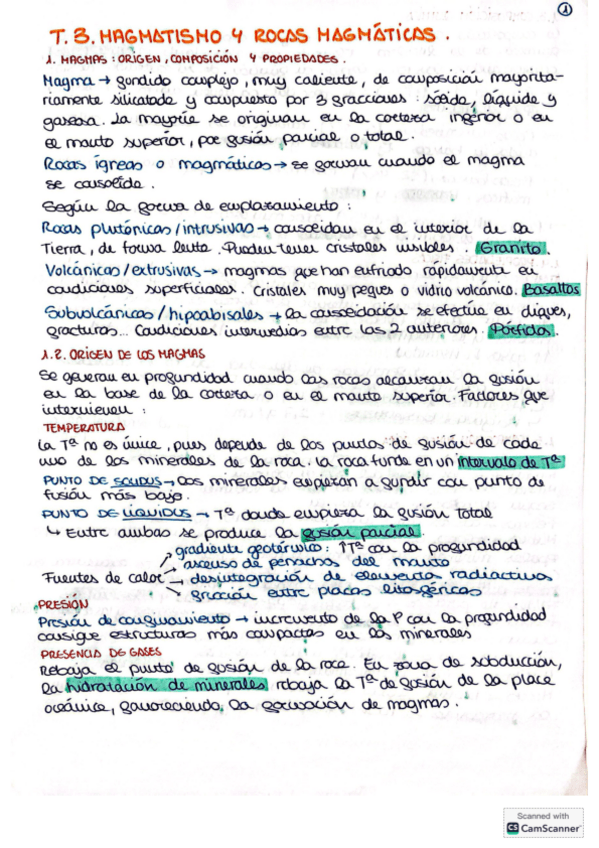 1
T.3. MAGMATISMO Y ROCAS MAGMÁTICAS.
1. MAGMAS: ORIGEN, COMPOSICIÓN Y PROPIEDADES.
Magma → fundido complejo, muy caliente, de composición mayorita-
riamente silicatada y compuesto por 3 fracciones: sólida, líquida y
gaseosa. La mayoría se originan en la corteza inferior o en
el manto superior, por fusión parcial o total.
Rocas ígneas o magmáticas → se forman cuando el magma
se consolida.
Según la forma de emplazamiento:
Rocas plutónicas/intrusivas → consolidan en el interior de la
Tierra, de forma lenta. Pueden tener cristales visibles. Granito.
Volcánicas/extrusivas → magmas que han enfriado rápidamente en
condiciones superficiales. Cristales muy peques o vidrio volcánico. Basaltos
Subvolcánicas/hipoabisales → la consolidación se efectúa en diques,
fracturas... Condiciones intermedias entre las 2 anteriores. Pórfidos.
1.2. ORIGEN DE LOS MAGMAS
Se generan en profundidad cuando las rocas alcanzan la fusión
en la base de la corteza o en el manto superior. Factores que
intervienen:
TEMPERATURA
La Tª no es única, pues depende de los puntos de fusión de cada
uno de los minerales de la roca. La roca funde en un intervalo de Tª
PUNTO DE SOLIDUS → los minerales empiezan a fundir con punto de
fusión más bajo.
PUNTO DE LIQUIDUS → Tª donde empieza la fusión total
↳ Entre ambas se produce la fusión parcial.
gradiente geotérmico: ↑Tª con la profundidad
ascenso de penachos del manto
Fuentes de calor → desintegración de elementos radiactivos
fricción entre placas litosféricas
PRESIÓN
Presión de confinamiento → incremento de la P con la profundidad
consigue estructuras más compactas en los minerales
PRESENCIA DE GASES
Rebaja el punto de fusión de la roca. En zona de subducción,
la hidratación de minerales rebaja la Tª de fusión de la placa
oceánica, favoreciendo la formación de magmas.
Scanned with
CS CamScanner